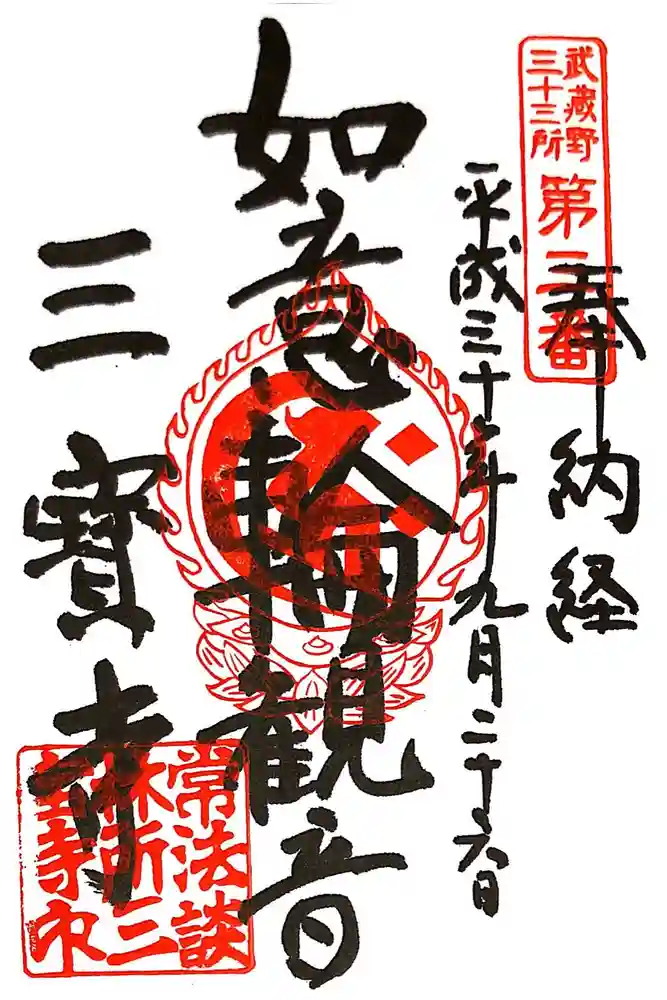 武蔵野
三十三所
第二番
奉納経
平成三十年九月二十六日
如意輪観音
三寳寺
常法談
林所三
寳寺印